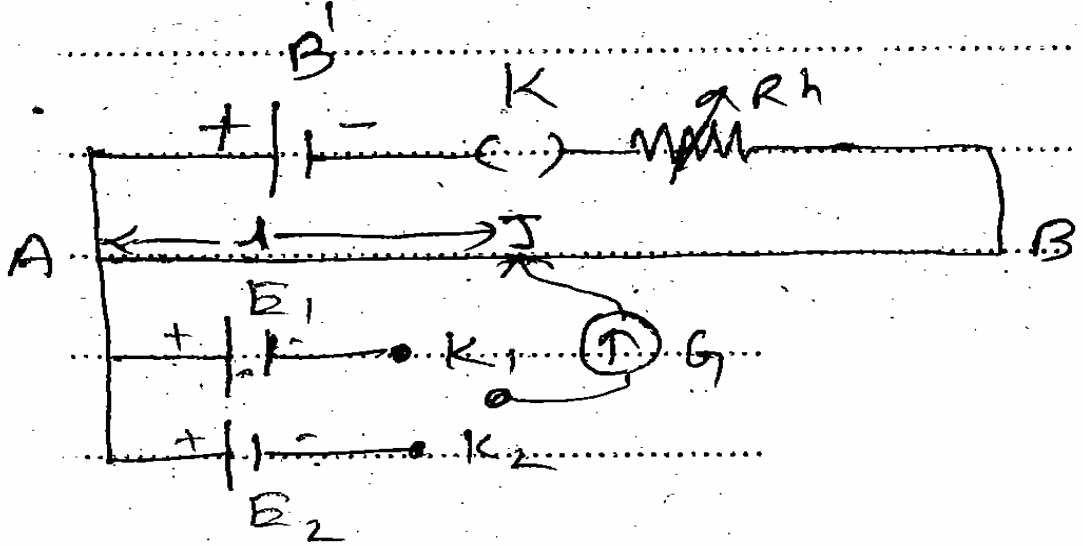 B'
K Rh
+ −
A l J B
E1
+ - K1 G
+ - K2
E2